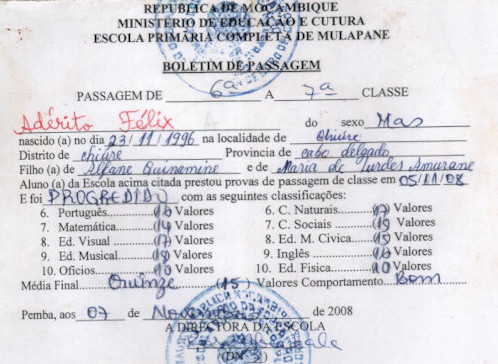 REPUBLICA DE MOÇAMBIQUE
MINISTÉRIO DE EDUCAÇÃO E CUTURA
ESCOLA PRIMÁRIA COMPLETA DE MULAPANE
BOLETIM DE PASSAGEM
PASSAGEM DE 6ª A 7ª CLASSE
Adérito Félix do sexo Mas
nascido (a) no dia 23/11/1996 na localidade de Chiúre
Distrito de chiúre Provincia de cabo delgado
Filho (a) de Alfane Quinamine e de Maria de Lurdes Amurane
Aluno (a) da Escola acima citada prestou provas de passagem de classe em 05/11/08
E foi PROGREDIDO com as seguintes classificações:
6. Português (16) Valores 6. C. Naturais (17) Valores
7. Matemática (14) Valores 7. C. Sociais (19) Valores
8. Ed. Visual (17) Valores 8. Ed. M. Civica (15) Valores
9. Ed. Musical (18) Valores 9. Inglês (16) Valores
10. Oficios (10) Valores 10. Ed. Fisica (10) Valores
Média Final Quinze (15) Valores Comportamento Bom
Pemba, aos 07 de Novembro de 2008
A DIRECTORA DA ESCOLA